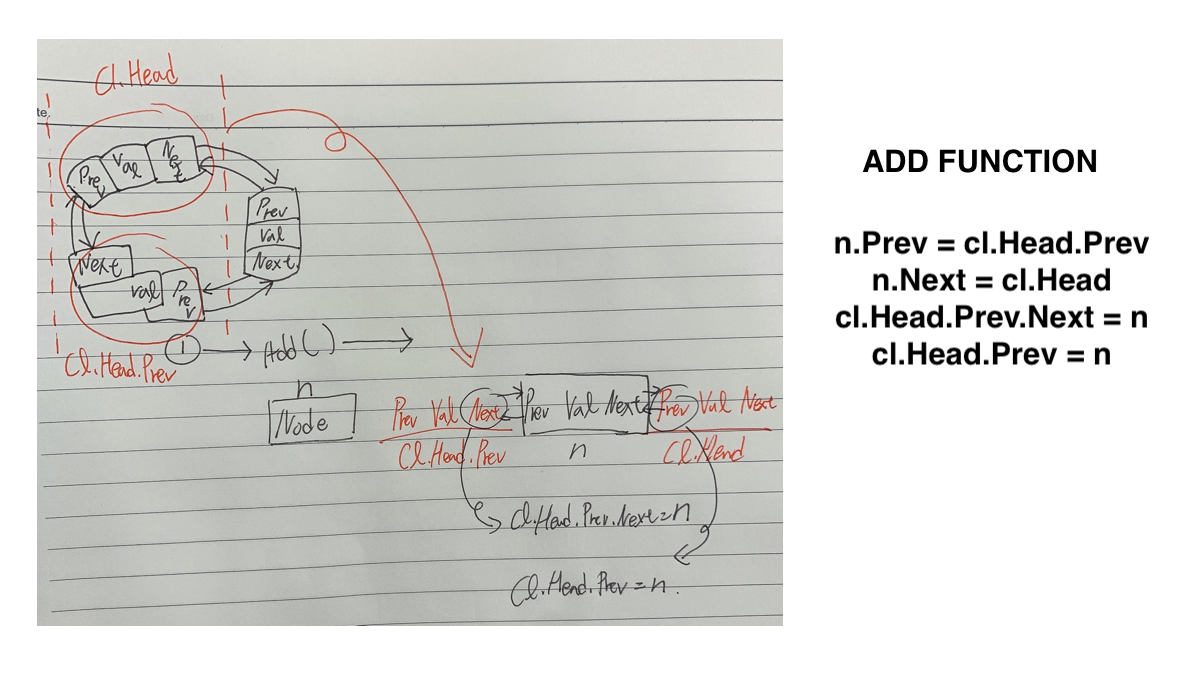 Cl.Head
te.
Prev Val Next
Prev
Val
Next
Next
val Prev
Cl.Head.Prev
1 Add( )
n
Node
Prev Val Next Prev Val Next Prev Val Next
Cl.Head.Prev n Cl.Head
Cl.Head.Prev.Next=n
Cl.Head.Prev=n.
ADD FUNCTION
n.Prev = cl.Head.Prev
n.Next = cl.Head
cl.Head.Prev.Next = n
cl.Head.Prev = n